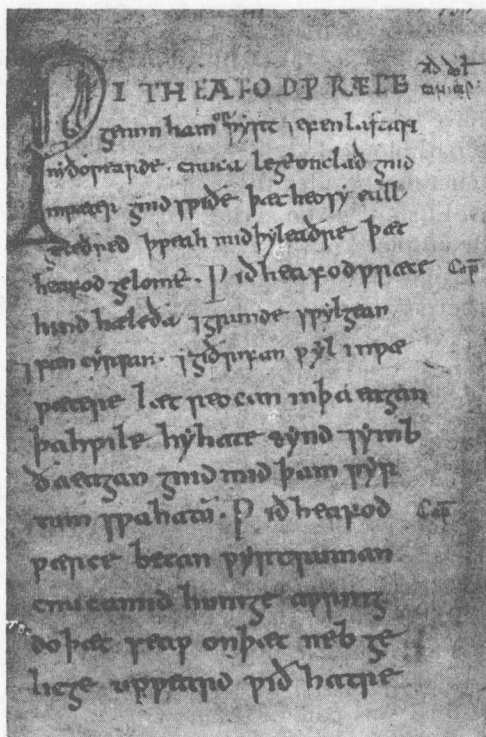 ǷIÐ HEAFODǷRÆCE
genim hamorƿyrt ⁊ efenlastan
nyðoƿearde · cnuca lege on clað gnid
in ƿæter gnid sƿiðe þæt heo sy eall
geleðred þƿeah mid þy leaðre þæt
heafod gelome · Ƿið heafodƿræce Cap̄
hind hæleða ⁊ grunde sƿylgean
⁊ fen cyrsan · ⁊ gidrifan ƿyl in ƿæ
ƿætere læt reocan in þa eagan
þa hƿile hy hate synd ⁊ ymb
ða eagan gnid mid þam ƿyr
tum sƿa hatū · Ƿið heafod Cap̄
ƿærce betan ƿyrtruman
cnuca mid hunige aƿring
do þæt seaƿ on þæt neb ge
licge upƿeard ƿið hatre